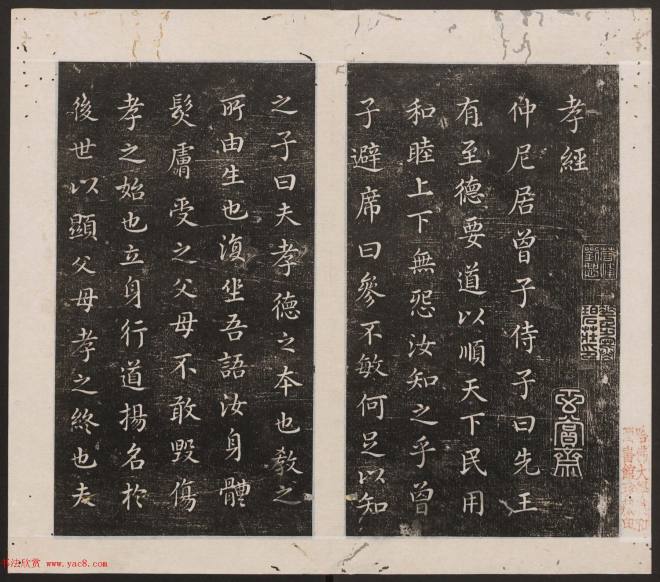 孝經
仲尼居曾子侍子曰先王
有至德要道以順天下民用
和睦上下無怨汝知之乎曾
子避席曰參不敏何足以知
之子曰夫孝德之本也教之
所由生也復坐吾語汝身體
髮膚受之父母不敢毀傷
孝之始也立身行道揚名於
後世以顯父母孝之終也夫
书法欣赏 www.yac8.com